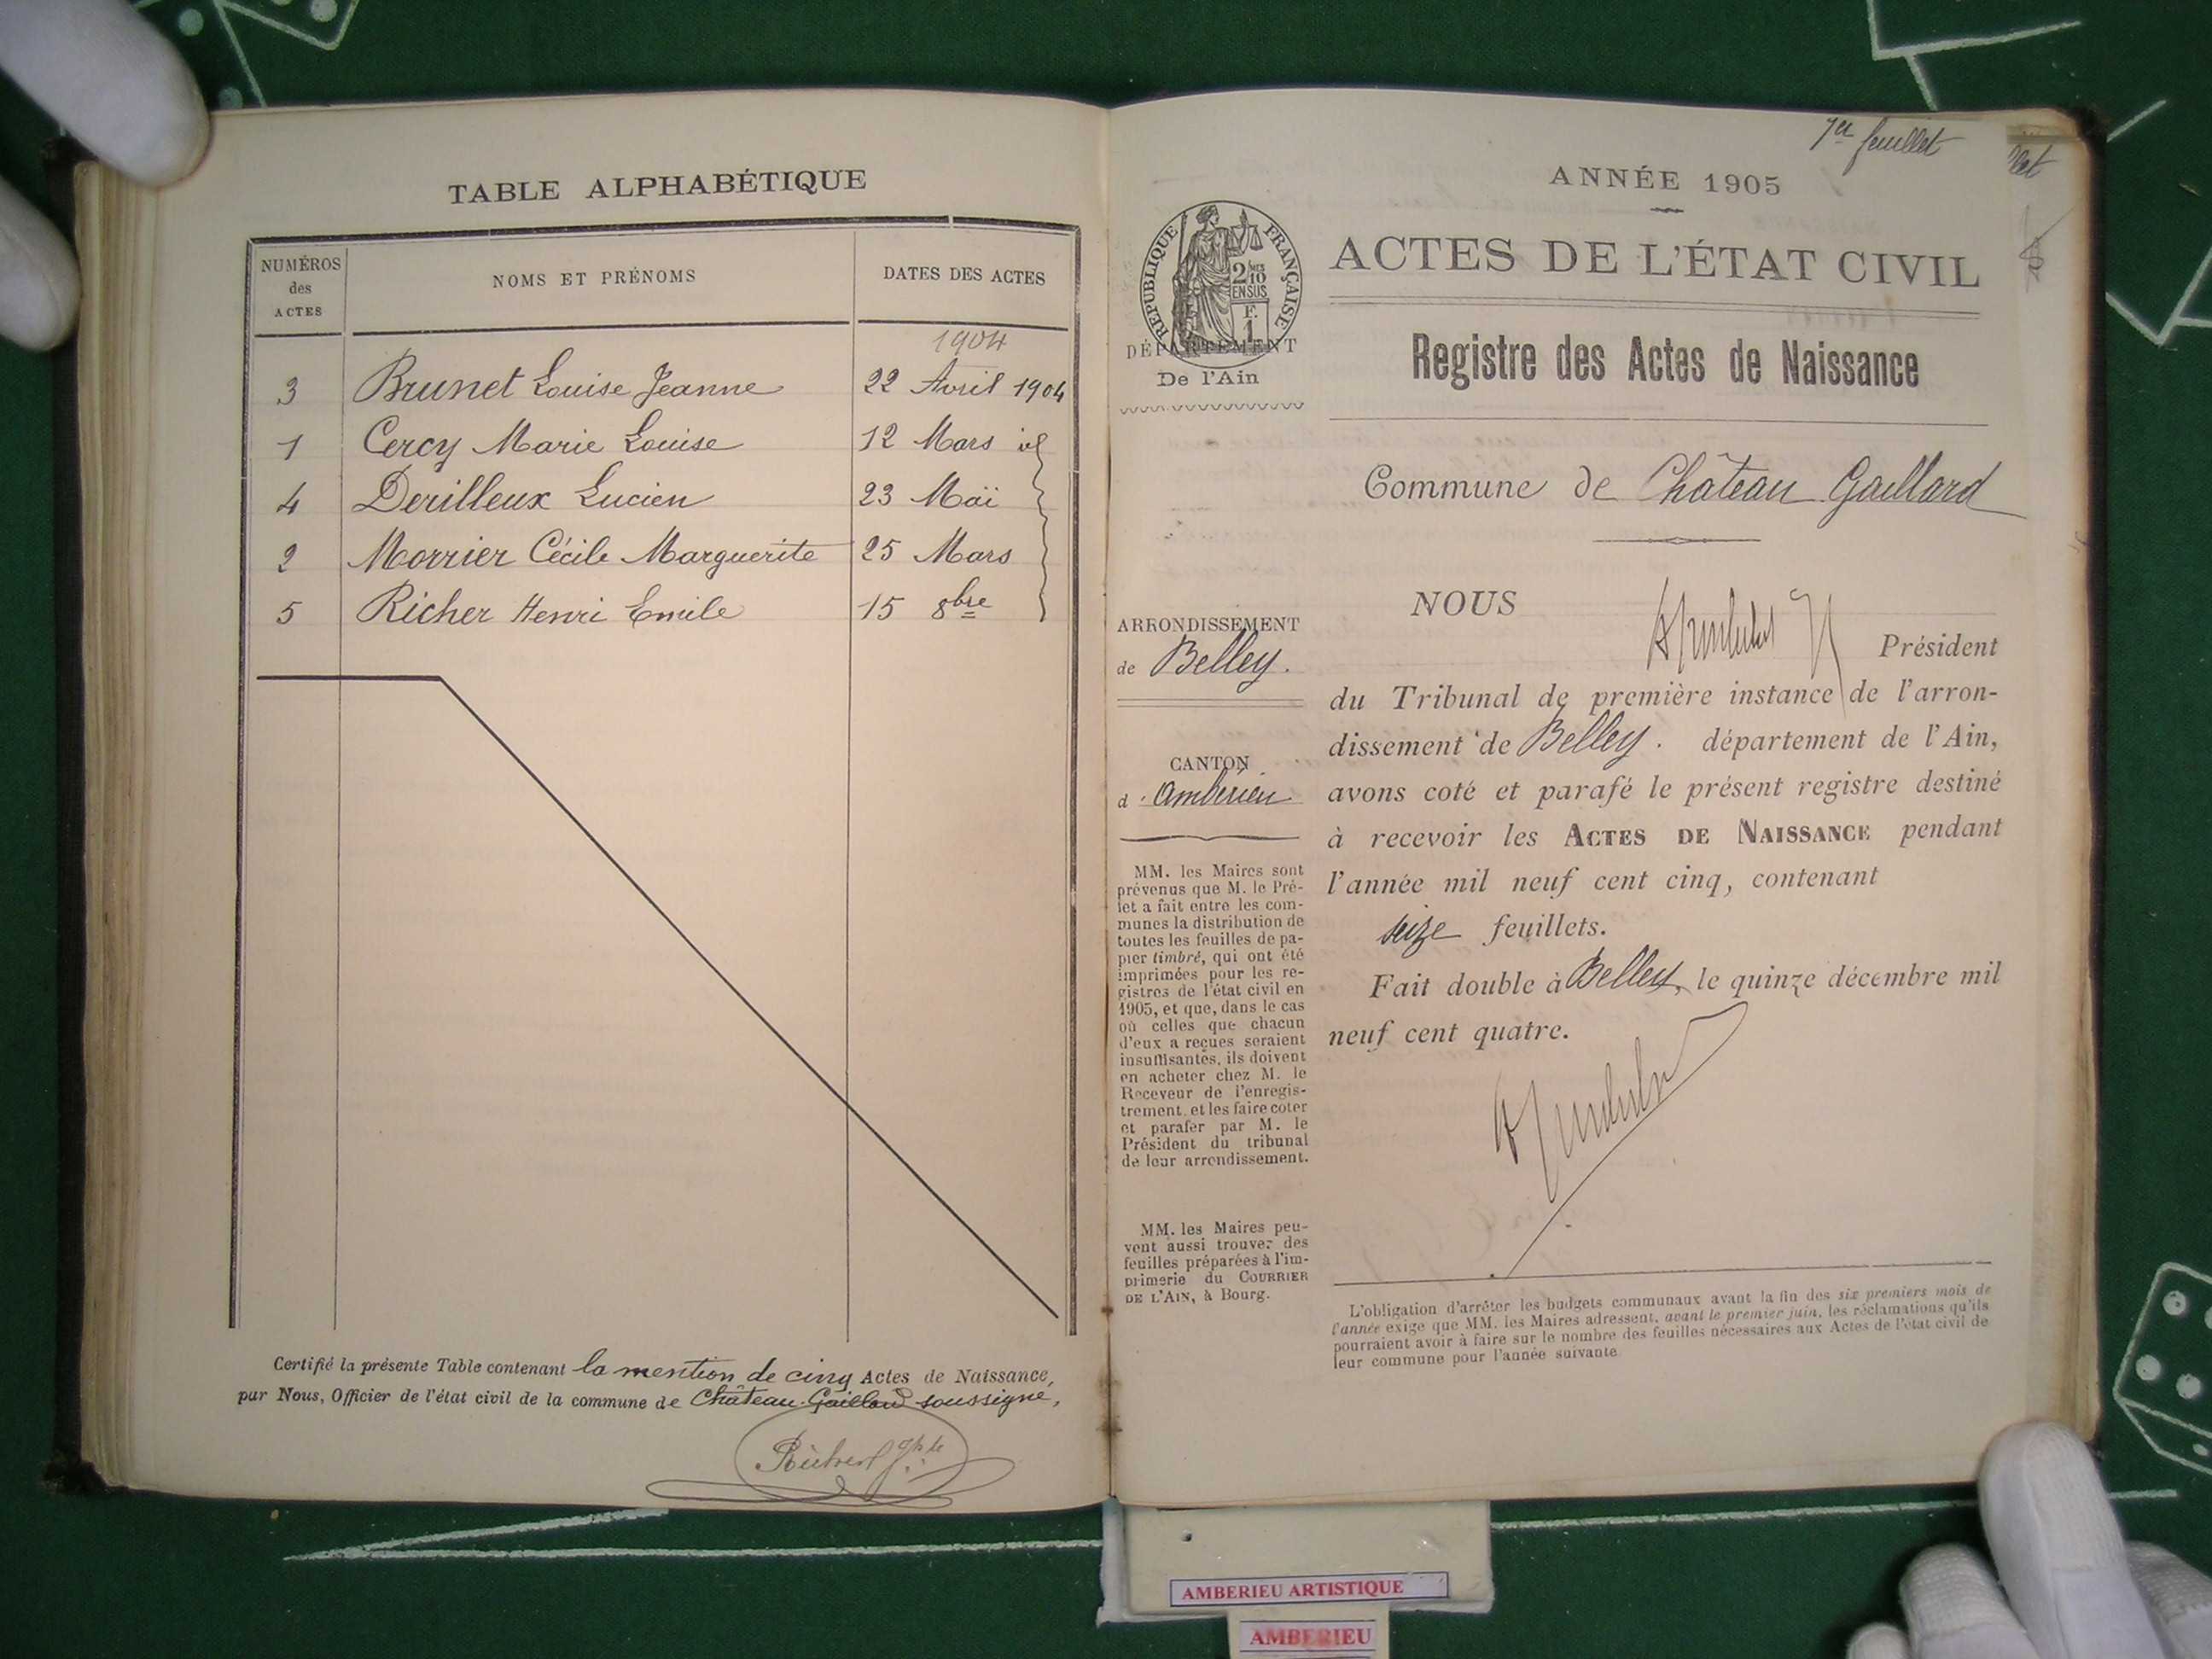 TABLE ALPHABÉTIQUE
NUMÉROS
des
ACTES
NOMS ET PRÉNOMS
DATES DES ACTES
1904
3 Brunet Louise Jeanne 22 Avril 1904
1 Cercy Marie Louise 12 Mars id
4 Derilleux Lucien 23 Maï
2 Morrier Cécile Marguerite 25 Mars
5 Richer Henri Emile 15 8bre
Certifié la présente Table contenant la mention de cinq Actes de Naissance,
par Nous, Officier de l'état civil de la commune de Château-Gaillard soussigné,
1er feuillet
ANNÉE 1905
RÉPUBLIQUE FRANÇAISE
2/10
EN SUS
F.
1
DÉPARTEMENT
De l'Ain
ACTES DE L'ÉTAT CIVIL
Registre des Actes de Naissance
Commune de Château Gaillard
ARRONDISSEMENT
de Belley.
CANTON
d'Ambérieu
MM. les Maires sont
prévenus que M. le Pré-
fet a fait entre les com-
munes la distribution de
toutes les feuilles de pa-
pier timbré, qui ont été
imprimées pour les re-
gistres de l'état civil en
1905, et que, dans le cas
où celles que chacun
d'eux a reçues seraient
insuffisantes, ils doivent
en acheter chez M. le
Receveur de l'enregis-
trement, et les faire coter
et parafer par M. le
Président du tribunal
de leur arrondissement.
MM. les Maires peu-
vent aussi trouver des
feuilles préparées à l'im-
primerie du COURRIER
DE L'AIN, à Bourg.
NOUS
Président
du Tribunal de première instance de l'arron-
dissement de Belley. département de l'Ain,
avons coté et parafé le présent registre destiné
à recevoir les ACTES DE NAISSANCE pendant
l'année mil neuf cent cinq, contenant
seize feuillets.
Fait double à Belley, le quinze décembre mil
neuf cent quatre.
L'obligation d'arrêter les budgets communaux avant la fin des six premiers mois de
l'année exige que MM. les Maires adressent, avant le premier juin, les réclamations qu'ils
pourraient avoir à faire sur le nombre des feuilles nécessaires aux Actes de l'état civil de
leur commune pour l'année suivante
AMBERIEU ARTISTIQUE
AMBERIEU